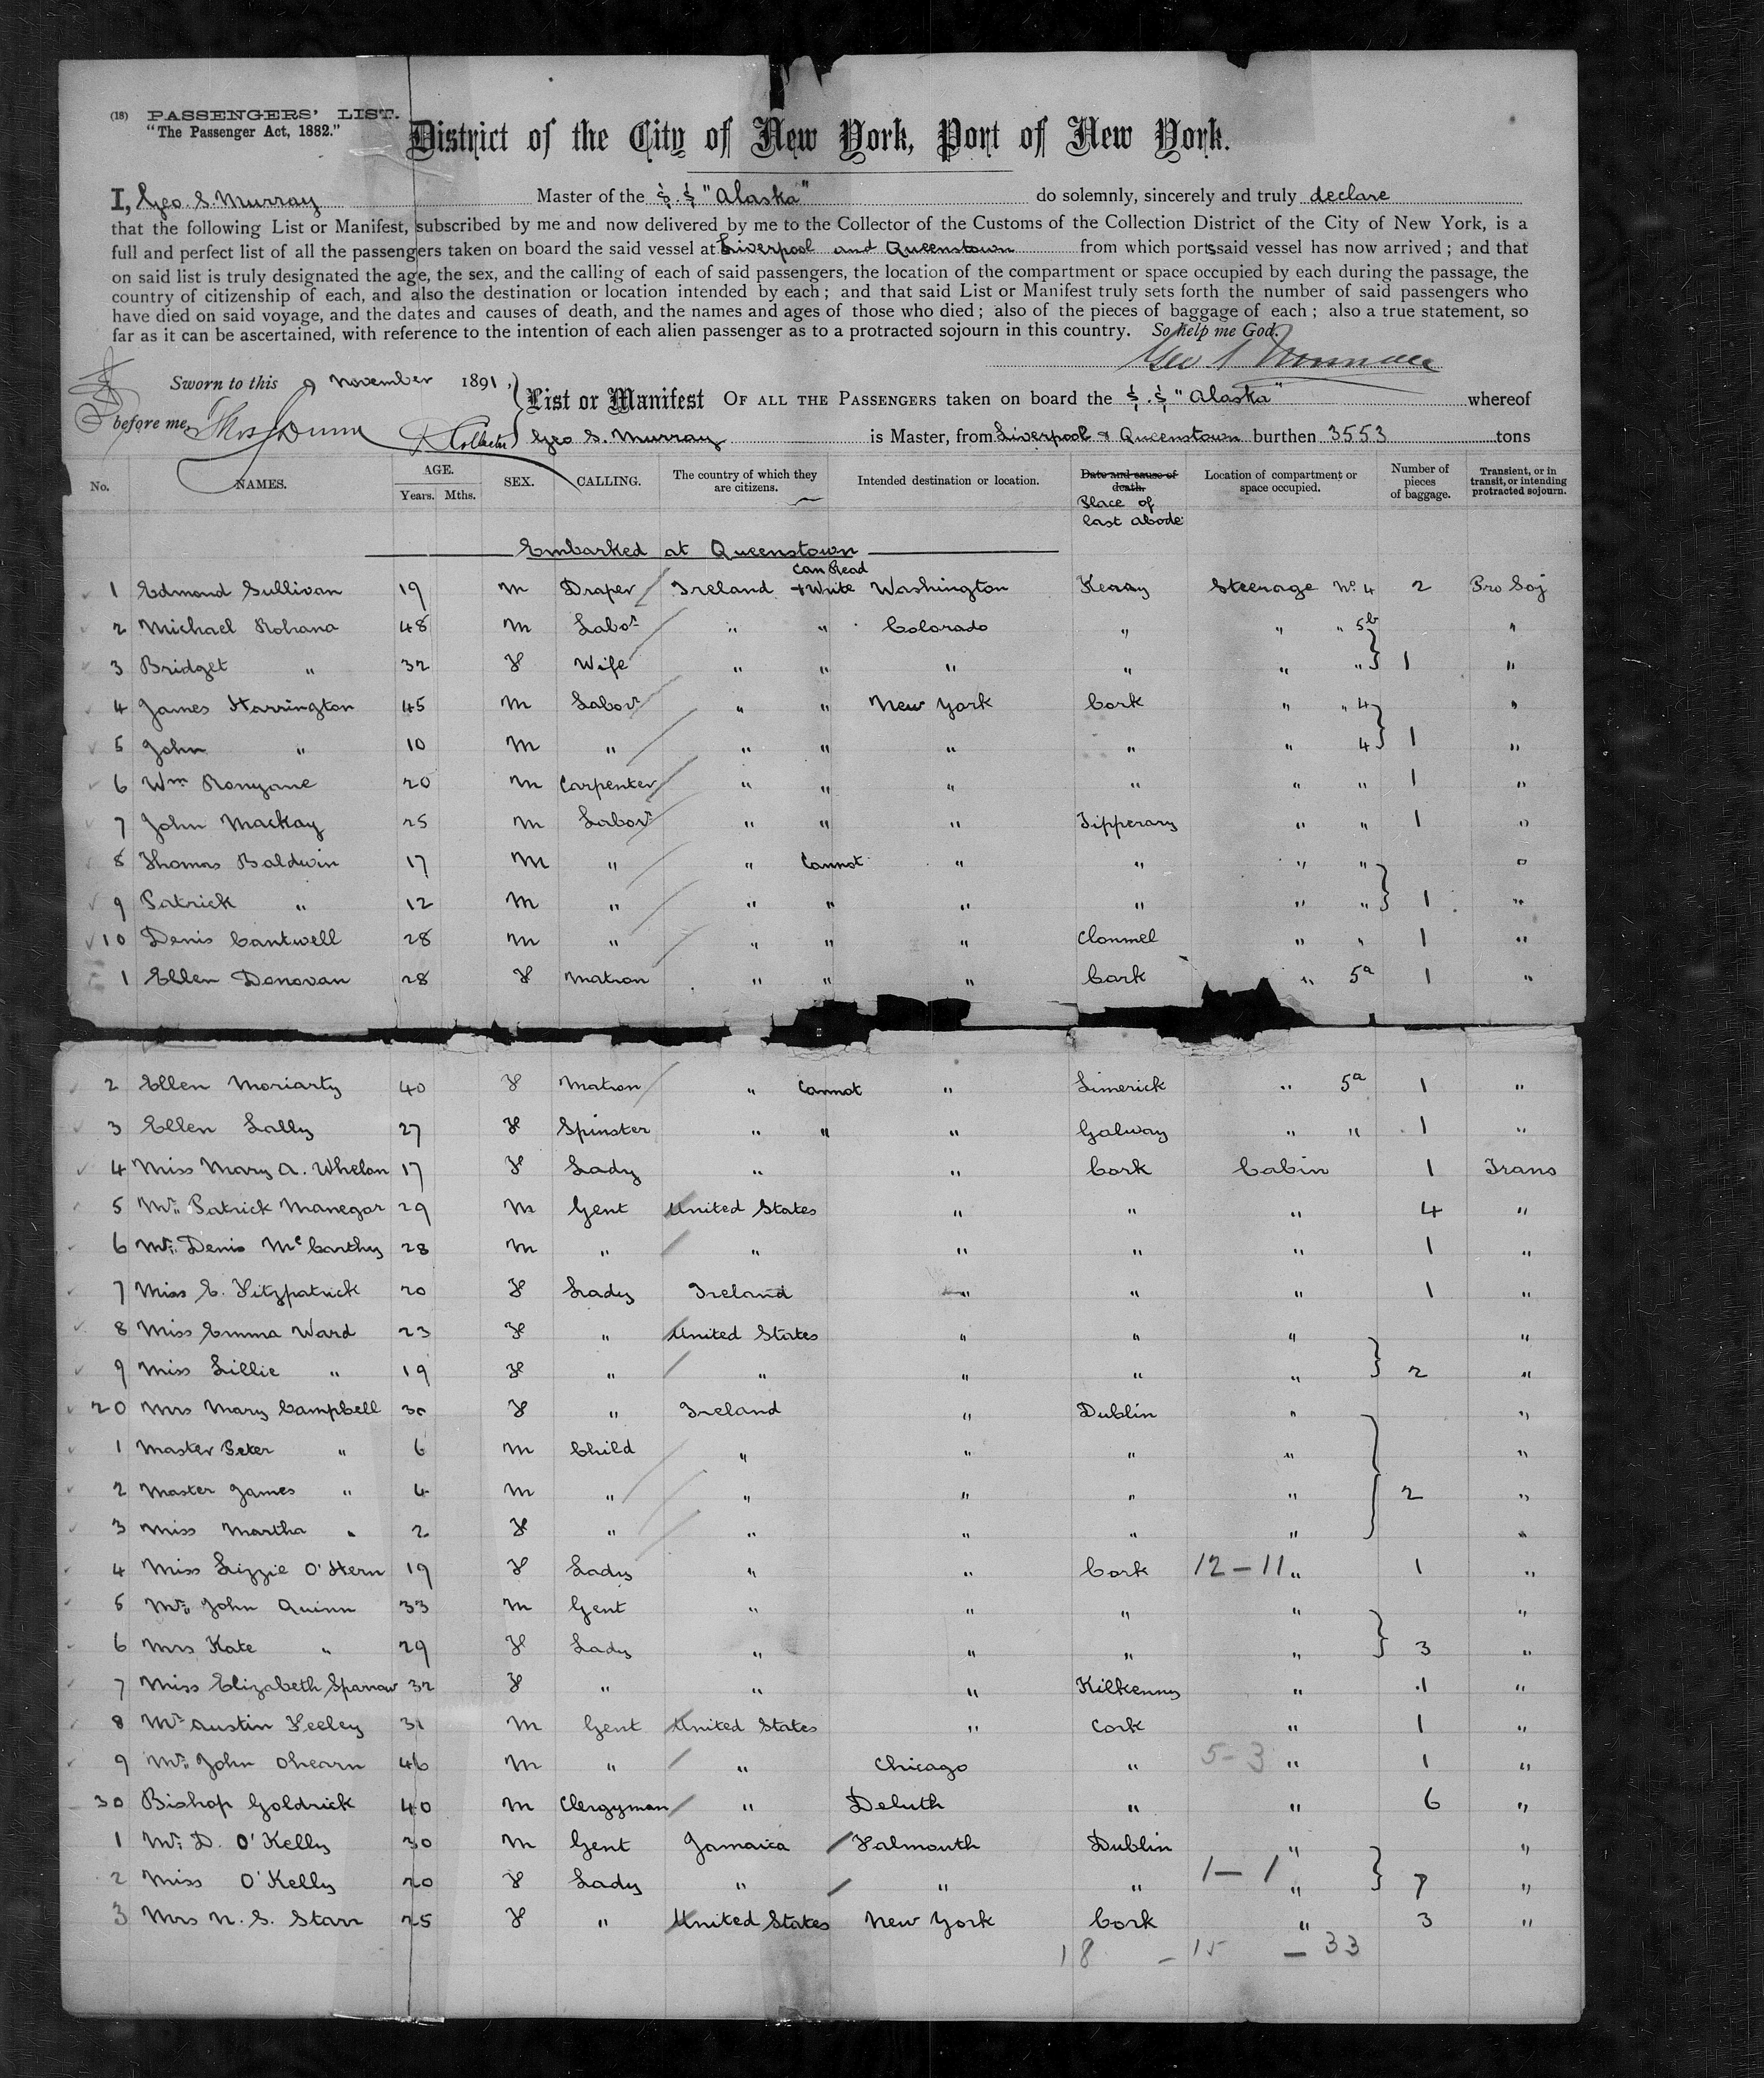 (18) PASSENGERS' LIST.
"The Passenger Act, 1882."
District of the City of New York, Port of New York.
I, Geo S. Murray Master of the S.S "Alaska" do solemnly, sincerely and truly declare
that the following List or Manifest, subscribed by me and now delivered by me to the Collector of the Customs of the Collection District of the City of New York, is a
full and perfect list of all the passengers taken on board the said vessel at Liverpool and Queenstown from which ports said vessel has now arrived; and that
on said list is truly designated the age, the sex, and the calling of each of said passengers, the location of the compartment or space occupied by each during the passage, the
country of citizenship of each, and also the destination or location intended by each; and that said List or Manifest truly sets forth the number of said passengers who
have died on said voyage, and the dates and causes of death, and the names and ages of those who died; also of the pieces of baggage of each; also a true statement, so
far as it can be ascertained, with reference to the intention of each alien passenger as to a protracted sojourn in this country. So help me God.
Geo S Murray
Sworn to this 9 November 1891,
before me, Collector
List or Manifest OF ALL THE PASSENGERS taken on board the S.S "Alaska" whereof
Geo S. Murray is Master, from Liverpool & Queenstown burthen 3553 tons
No. NAMES. AGE. Years. Mths. SEX. CALLING. The country of which they are citizens. Intended destination or location. Date and cause of death. Place of last abode Location of compartment or space occupied. Number of pieces of baggage. Transient, or in transit, or intending protracted sojourn.
Embarked at Queenstown
1 Edmond Sullivan 19 M Draper Ireland Can Read + Write Washington Kerry Steerage No. 4 2 Pro Soj
2 Michael Rohana 48 M Labor " " Colorado " " " 5b "
3 Bridget " 32 F Wife " " " " " " 1 "
4 James Harrington 45 M Labor " " New York Cork " " 4 "
5 John " 10 M " " " " " " 4 1 "
6 Wm Ronyane 20 M Carpenter " " " " " " 1 "
7 John Mackay 25 M Labor " " " Tipperary " " 1 "
8 Thomas Baldwin 17 M " " Cannot " " " " "
9 Patrick " 12 M " " " " " " " 1 "
10 Denis Cantwell 28 M " " " " Clonmel " " 1 "
1 Ellen Donovan 28 F Matron " " " Cork " 5a 1 "
2 Ellen Moriarty 40 F Matron " Cannot " Limerick " 5a 1 "
3 Ellen Lally 27 F Spinster " " " Galway " " 1 "
4 Miss Mary A. Whelan 17 F Lady " " Cork Cabin 1 Trans
5 Mr. Patrick Manegar 29 M Gent United States " " " 4 "
6 Mr. Denis McCarthy 28 M " " " " " 1 "
7 Miss E. Fitzpatrick 20 F Lady Ireland " " " 1 "
8 Miss Emma Ward 23 F " United States " " " "
9 Miss Lillie " 19 F " " " " " 2 "
20 Mrs Mary Campbell 30 F " Ireland " Dublin " "
1 Master Peter " 6 M Child " " " " "
2 Master James " 4 M " " " " " 2 "
3 Miss Martha " 2 F " " " " " "
4 Miss Lizzie O'Hern 19 F Lady " " Cork 12 – 11 " 1 "
5 Mr. John Quinn 33 M Gent " " " " "
6 Mrs Kate " 29 F Lady " " " " 3 "
7 Miss Elizabeth Sparrow 32 F " " " Kilkenny " 1 "
8 Mr Austin Feeley 31 M Gent United States " Cork " 1 "
9 Mr. John Ohearn 46 M " " Chicago " 5 – 3 " 1 "
30 Bishop Goldrick 40 M Clergyman " Deluth " " 6 "
1 Mr. D. O'Kelly 30 M Gent Jamaica Falmouth Dublin " "
2 Miss O'Kelly 20 F Lady " " " 1 – 1 " 7 "
3 Mrs N. S. Starr 25 F " United States New York Cork " 3 "
18 – 15 – 33